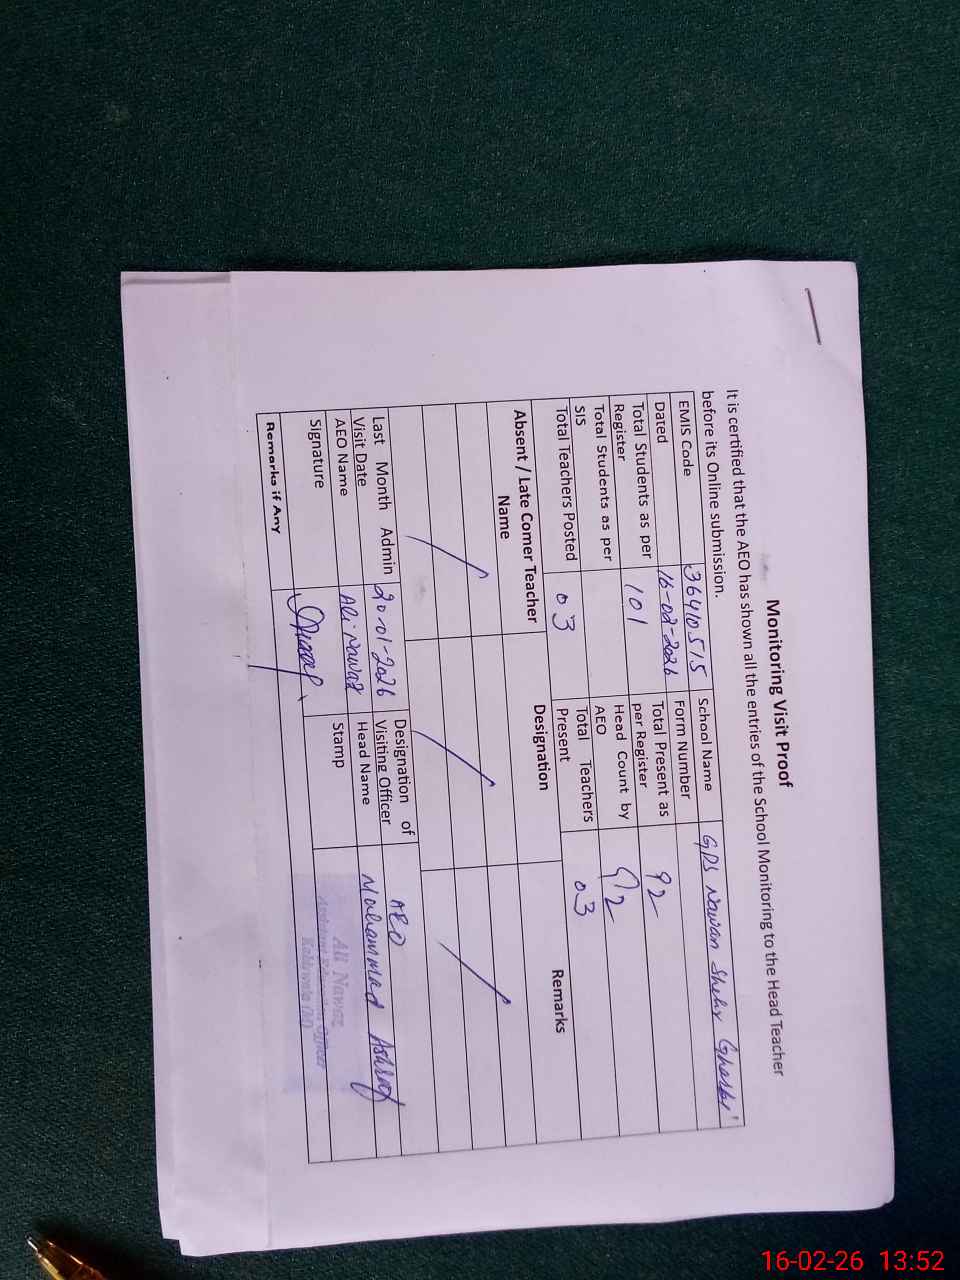 Monitoring Visit Proof
It is certified that the AEO has shown all the entries of the School Monitoring to the Head Teacher
before its Online submission.
EMIS Code 36410515 School Name GPS Nawan Shehr Gharbi
Dated 16-02-2026 Form Number
Total Students as per Register 101 Total Present as per Register 92
Total Students as per SIS Head Count by AEO 92
Total Teachers Posted 03 Total Teachers Present 03
Absent / Late Comer Teacher Name Designation Remarks
Last Month Admin Visit Date 20-01-2026 Designation of Visiting Officer AEO
AEO Name Ali Nawaz Head Name Muhammad Ashraf
Signature Stamp Ali Nawaz
Assistant Education Officer
Remarks if Any
16-02-26 13:52